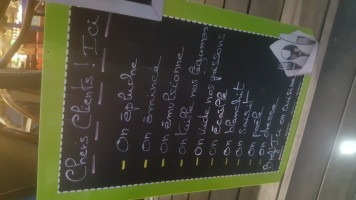 Chers Clients ! Ici
- On épluche
- On émince
- On émulsionne
- On taille nos légumes
- On vide nos poissons
- On écaille
- On blanchit
- On saisit
- On
- On dresse
Ici on cuisine